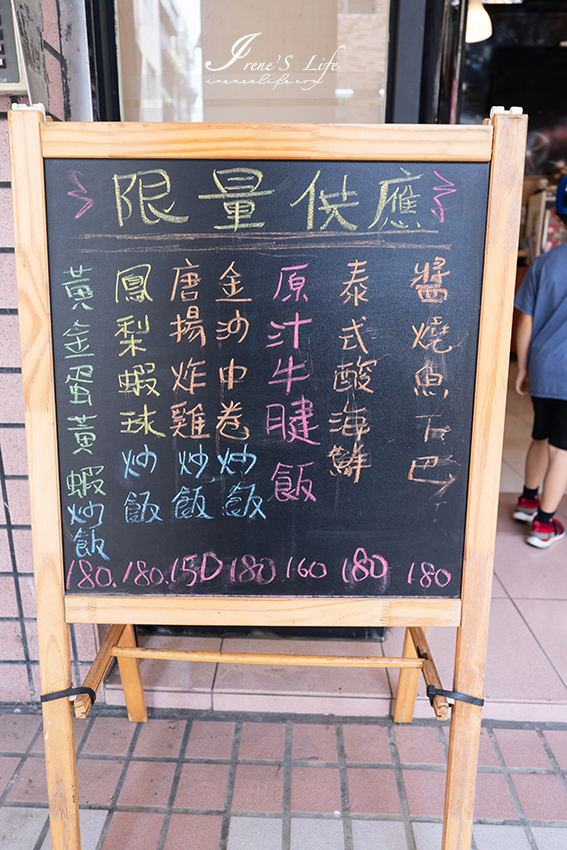 Irene'S Life
irenenelife.com
限量供應
醬燒魚下巴
泰式酸海鮮
原汁牛腱飯
金沙中卷炒飯
唐揚炸雞炒飯
鳳梨蝦球炒飯
黃金蛋黃蝦炒飯
180. 180. 150 180 160 180 180